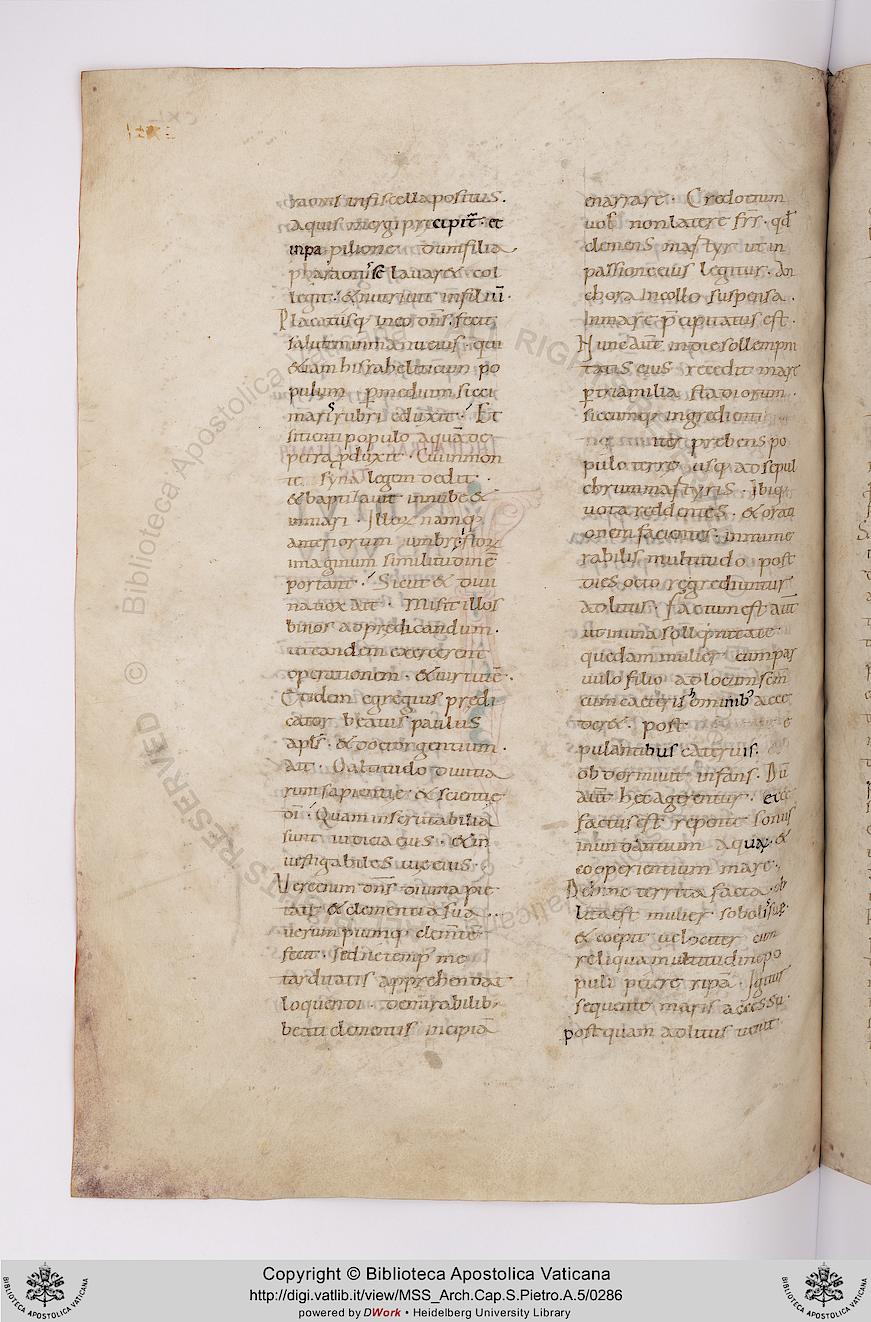 raonis infiscella positus.
aquis mergi precipit̄. et
inpa pilione dum filia
pharaonis se lauar&. col
legit. & nutriuit in filiū.
Placatusq; in eo dn̄s. fecit
salutem in manu eius. qui
& iam hisrahelitticum po
pulum per medium sicci
maris rubri eduxit. Et
sitienti populo aquā de
petra pduxit. Cui in mon
te syna legem dedit.
& baptizauit in nube &
in mari. Illoꝝ namq;
anteriorum umbre
imaginum similitudinē
portant. Sicut & diui
na uox ait. Misit illos
binos ad predicandum.
ut eandem exercerent
operationem. & uirtutē.
Et idem egregius predi
cator beatus paulus
apl̄s. & doctor gentium.
ait. O altitudo diuitia
rum sapientie & scientie
dī. Quam inscrutabilia
sunt iudicia eius. & in
uestigabiles uie eius.
Verum dn̄s diuina pie
tate & clementia sua.
uerum piumq;
fecit. Sed ne temp me
tarditatis apprehendat
loquendi. de mirabilib;
beati clementis incipiā
enarrare. Credo enim
uob̄ non latere fr̄s. qd̄
clemens martyr ut in
passione eius legitur. An
chora in collo suspensa.
In mare p̄cipitatus est.
Nunc aut̄ in die sollempni
tatis eius recedit mare
per tria milia stadiorum.
siccumq; ingredienti
iter prebens po
pulo terre usq; ad sepul
chrum martyris. Ibiq;
uota reddentes. & orati
onem facientes. innume
rabilis multitudo post
dies octo regrediuntur
ad litus. Factum est aut̄
ut in una sollepnitate.
quedam mulier cum par
uulo filio ad locum
cum caeteris hominib; acce
der&. post e
pulantibus cateruis.
obdormiuit infans. Dū
aut̄ hec agerentur. ecce
factus est repente sonus
inundantium aquaꝝ. &
cooperientium mare.
Dehinc territa facta. ob
lita est mulier sobolis suę.
& coepit uelociter cum
reliqua multitudine po
puli petere ripā. Igitur
sequente maris accessu.
postquam ad litus uenit
Copyright © Biblioteca Apostolica Vaticana
http://digi.vatlib.it/view/MSS_Arch.Cap.S.Pietro.A.5/0286
powered by DWork • Heidelberg University Library